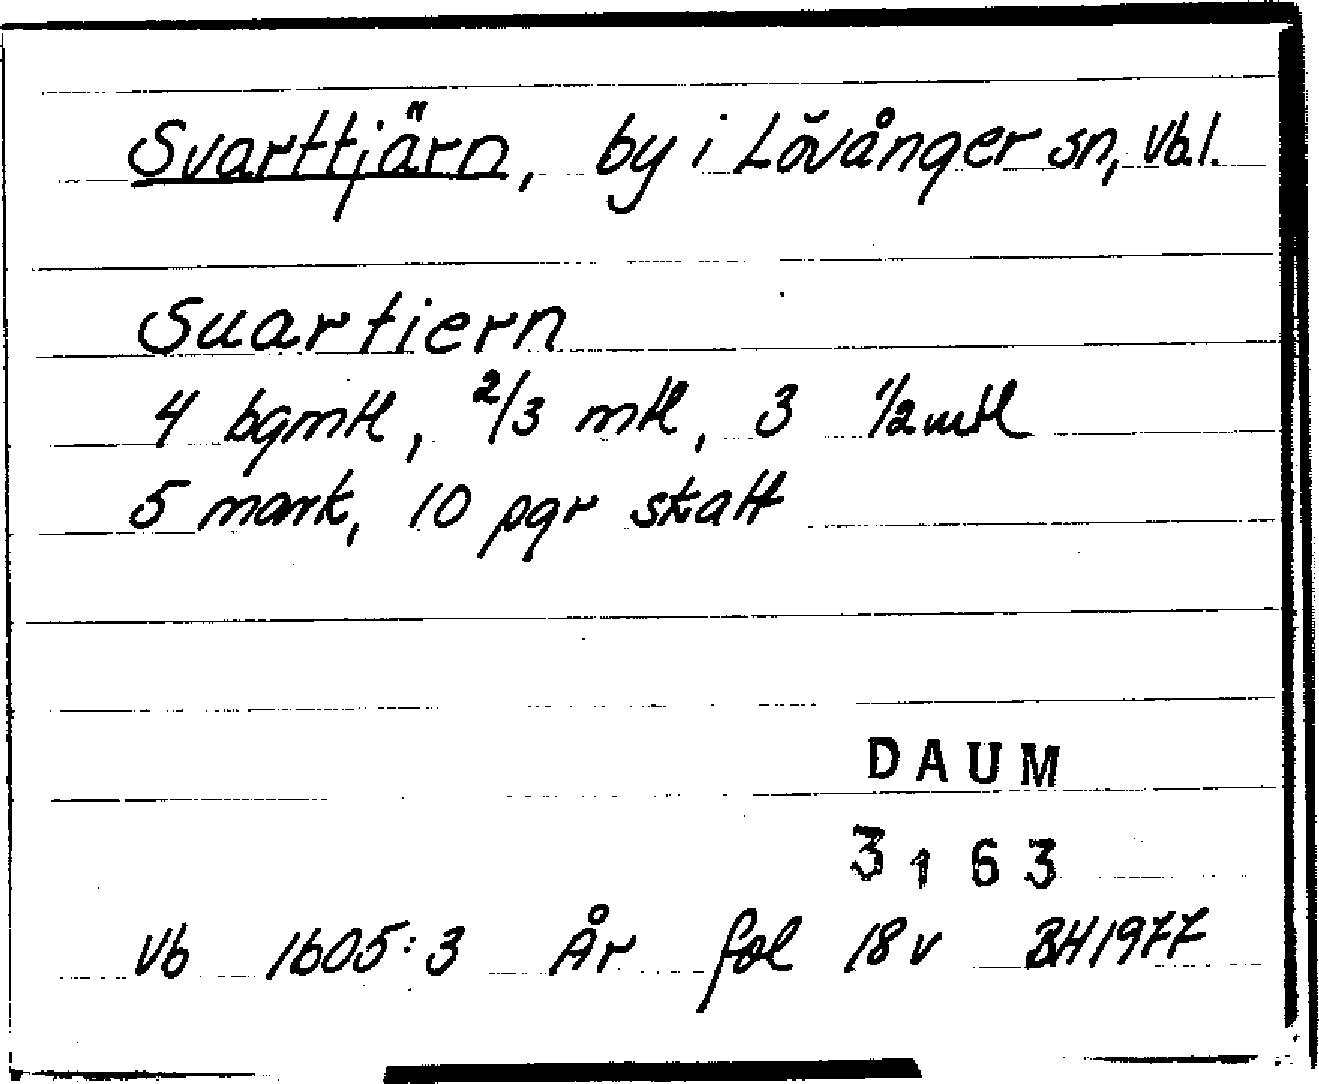 Svarttjärn, by i Lövånger sn, Vb.l.
Suartiern
4 bgmtl, 2/3 mtl, 3 1/2 mtl
5 mark, 10 pgr skatt
DAUM
3163
Vb 1605:3 År fol 18 v BH1977